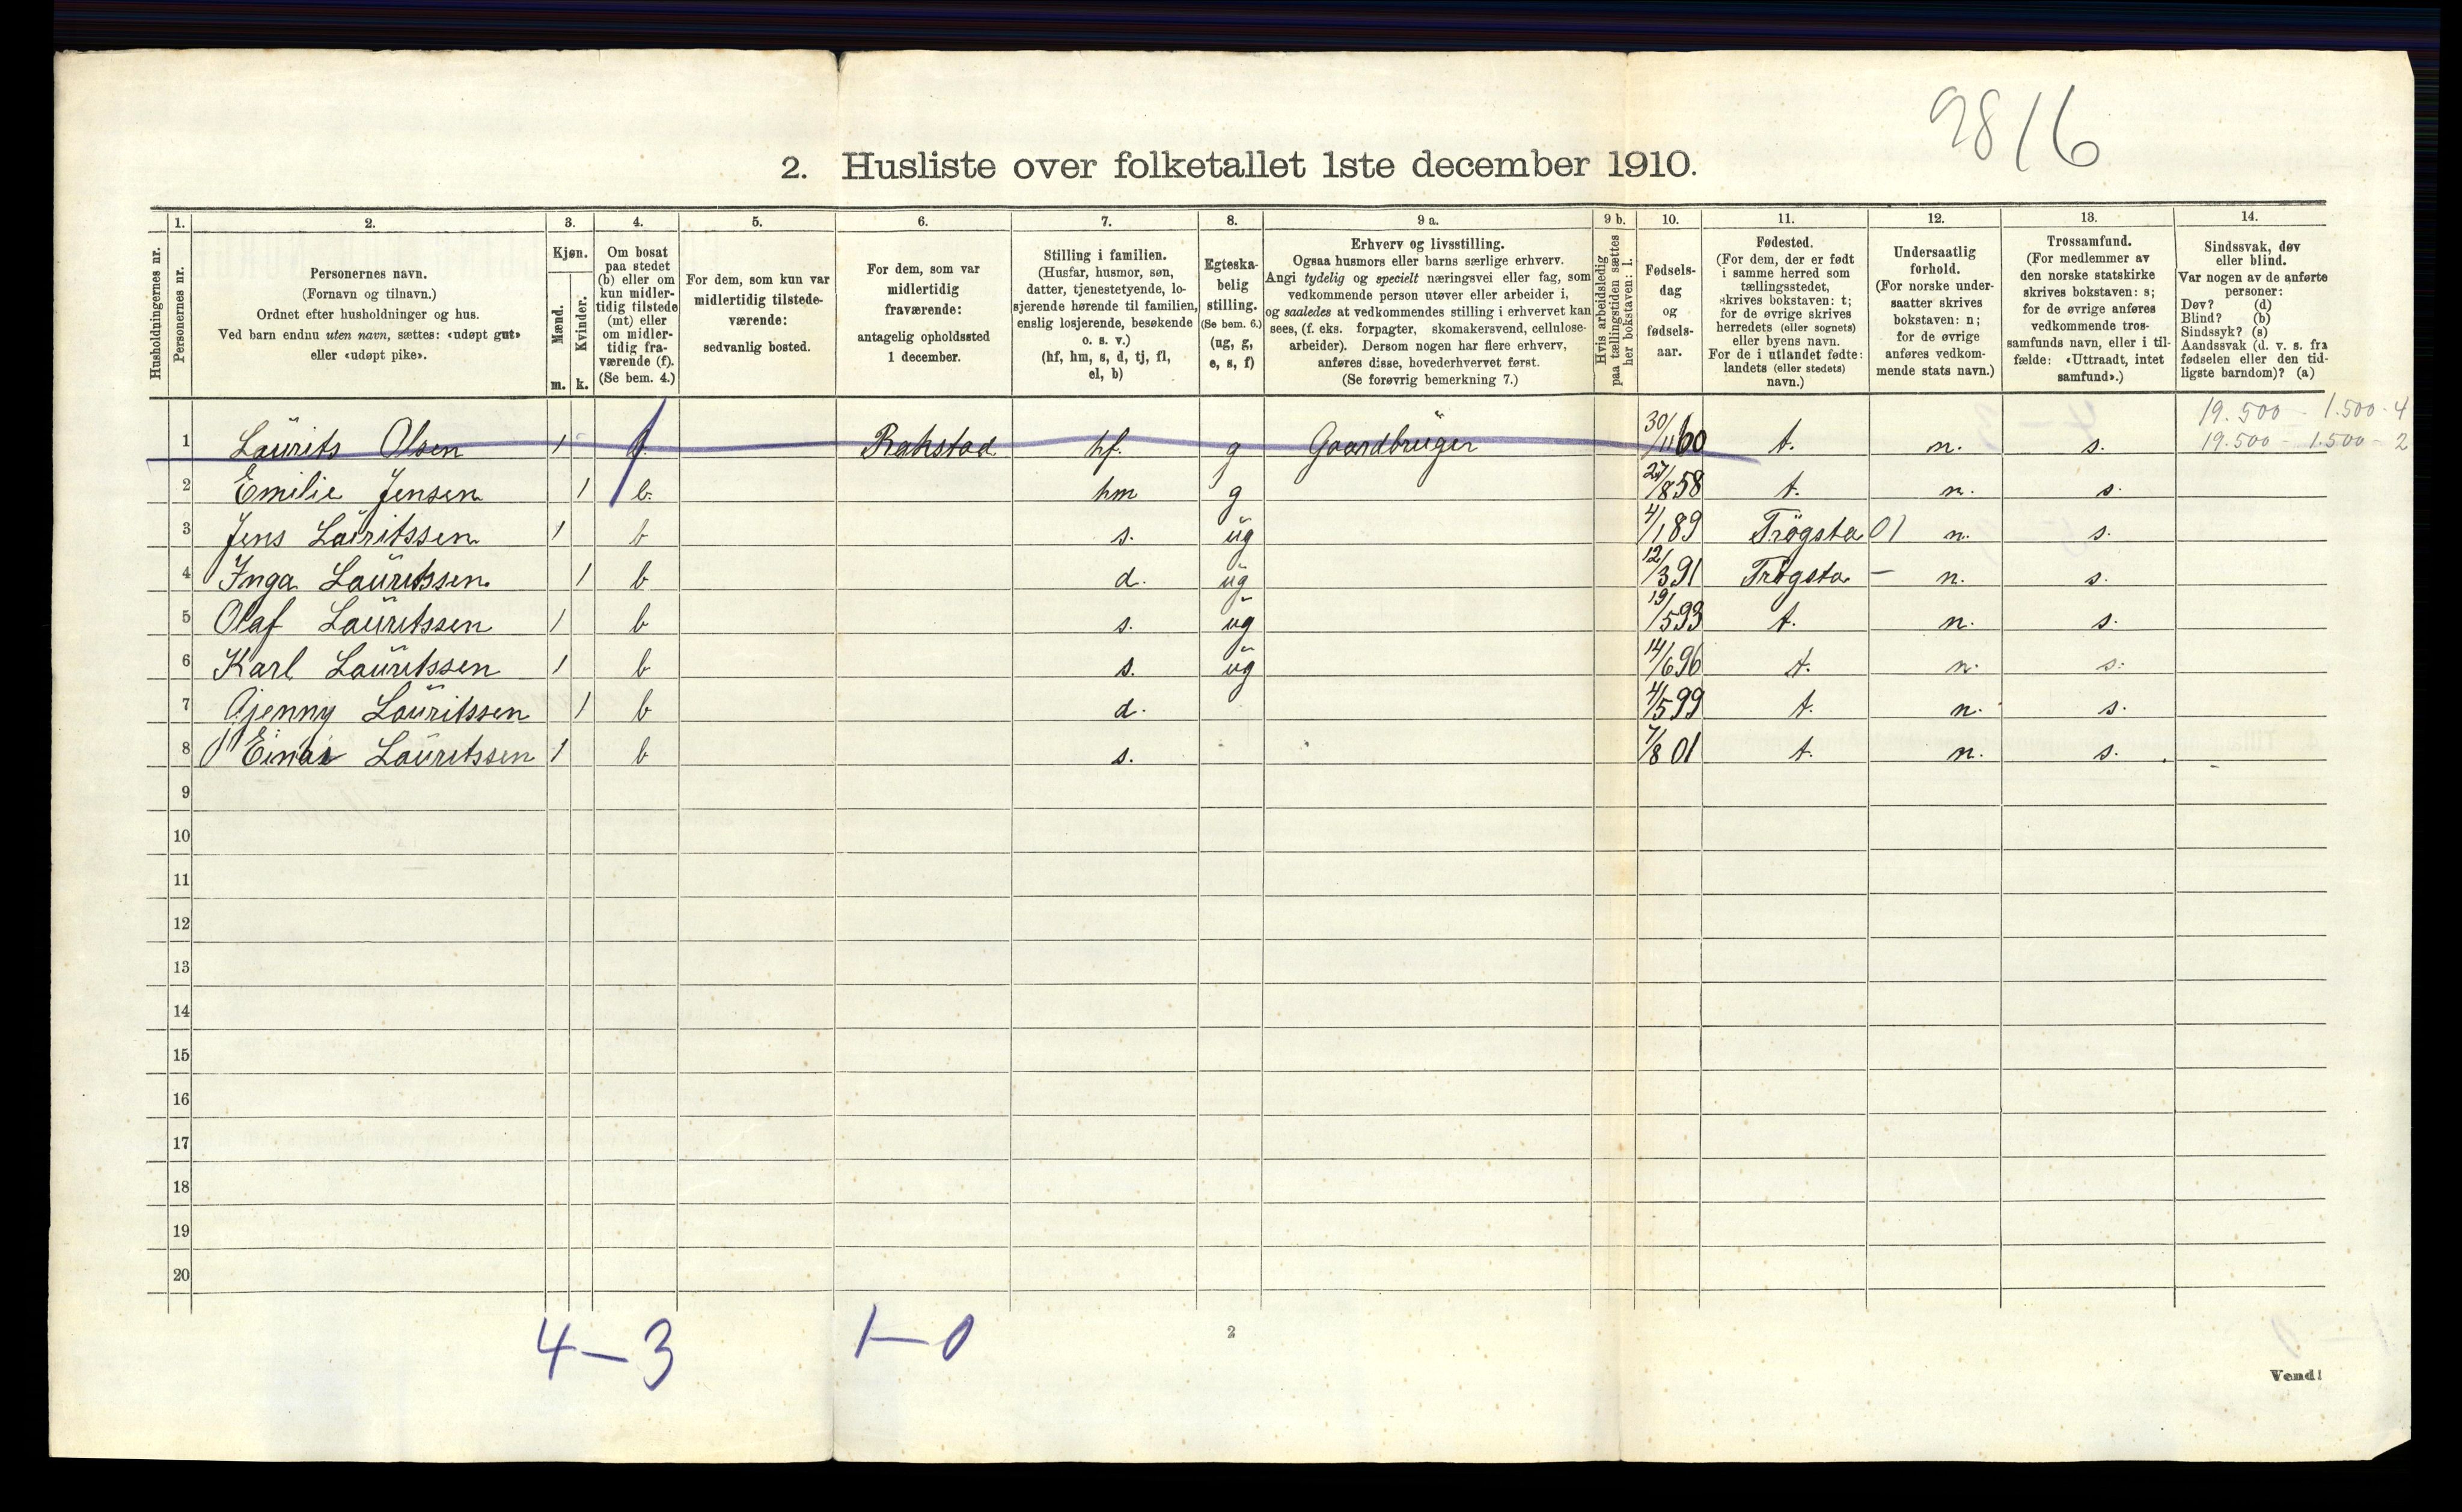 9816
2. Husliste over folketallet 1ste december 1910.
Husholdningernes nr.
1.
Personernes nr.
2.
Personernes navn.
(Fornavn og tilnavn.)
Ordnet efter husholdninger og hus.
Ved barn endnu uten navn, sættes: «udøpt gut»
eller «udøpt pike».
3.
Kjøn.
Mænd.
Kvinder.
m. k.
4.
Om bosat
paa stedet
(b) eller om
kun midler-
tidig tilstede
(mt) eller
om midler-
tidig fra-
værende (f).
(Se bem. 4.)
5.
For dem, som kun var
midlertidig tilstede-
værende:
sedvanlig bosted.
6.
For dem, som var
midlertidig
fraværende:
antagelig opholdssted
1 december.
7.
Stilling i familien.
(Husfar, husmor, søn,
datter, tjenestetyende, lo-
sjerende hørende til familien,
enslig losjerende, besøkende
o. s. v.)
(hf, hm, s, d, tj, fl,
el, b)
8.
Egteska-
belig
stilling.
(Se bem. 6.)
(ug, g,
e, s, f)
9 a.
Erhverv og livsstilling.
Ogsaa husmors eller barns særlige erhverv.
Angi tydelig og specielt næringsvei eller fag, som
vedkommende person utøver eller arbeider i,
og saaledes at vedkommendes stilling i erhvervet kan
sees, (f. eks. forpagter, skomakersvend, cellulose-
arbeider). Dersom nogen har flere erhverv,
anføres disse, hovederhvervet først.
(Se forøvrig bemerkning 7.)
9 b.
Hvis arbeidsledig
paa tællingstiden sættes
her bokstaven: l.
10.
Fødsels-
dag
og
fødsels-
aar.
11.
Fødested.
(For dem, der er født
i samme herred som
tællingsstedet,
skrives bokstaven: t;
for de øvrige skrives
herredets (eller sognets)
eller byens navn.
For de i utlandet fødte:
landets (eller stedets)
navn.)
12.
Undersaatlig
forhold.
(For norske under-
saatter skrives
bokstaven: n;
for de øvrige
anføres vedkom-
mende stats navn.)
13.
Trossamfund.
(For medlemmer av
den norske statskirke
skrives bokstaven: s;
for de øvrige anføres
vedkommende tros-
samfunds navn, eller i til-
fælde: «Uttraadt, intet
samfund».)
14.
Sindssvak, døv
eller blind.
Var nogen av de anførte
personer:
Døv? (d)
Blind? (b)
Sindssyk? (s)
Aandssvak (d. v. s. fra
fødselen eller den tid-
ligste barndom)? (a)
19.500 - 1.500 - 4
1 Laurits Olsen 1 f. Rakstad hf. g Gaardbruger 30/11 60 t. n. s. 19.500 - 1.500 - 2
2 Emilie Jensen 1 b. hm g 27/8 58 t. n. s.
3 Jens Lauritssen 1 b s. ug 4/1 89 Trøgsta 01 n. s.
4 Inga Lauritssen. 1 b d. ug 12/3 91 Trøgsta - n. s.
5 Olaf Lauritssen 1 b s. ug 19/5 93 t. n. s.
6 Karl Lauritssen 1 b s. ug 14/6 96 t. n. s.
7 Gjenny Lauritssen 1 b d. 4/5 99 t. n. s.
8 Einar Lauritssen 1 b s. 7/8 01 t. n. s.
9
10
11
12
13
14
15
16
17
18
19
20
4-3 1-0
2
Vend!